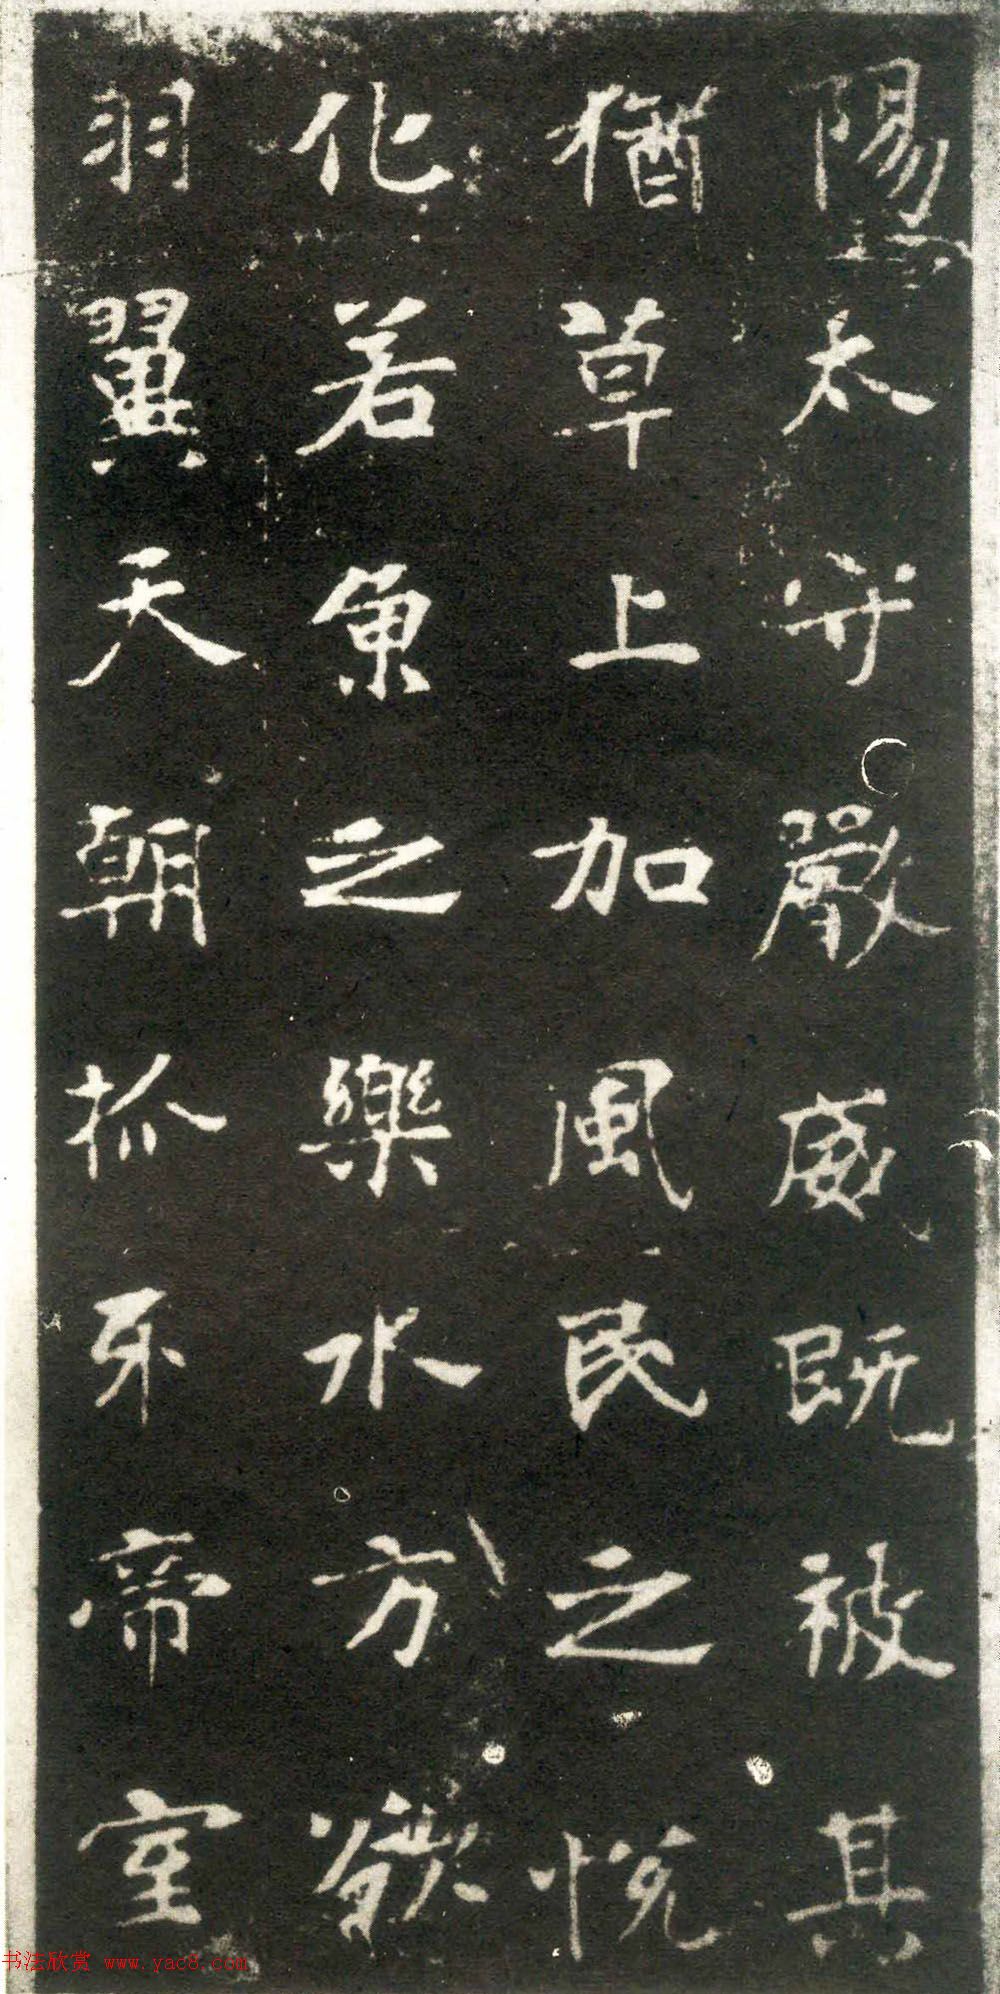 陽太守嚴威既被其
猶草上加風民之悦
化若魚之樂水方欲
羽翼天朝抓牙帝室
书法欣赏 www.yac8.com